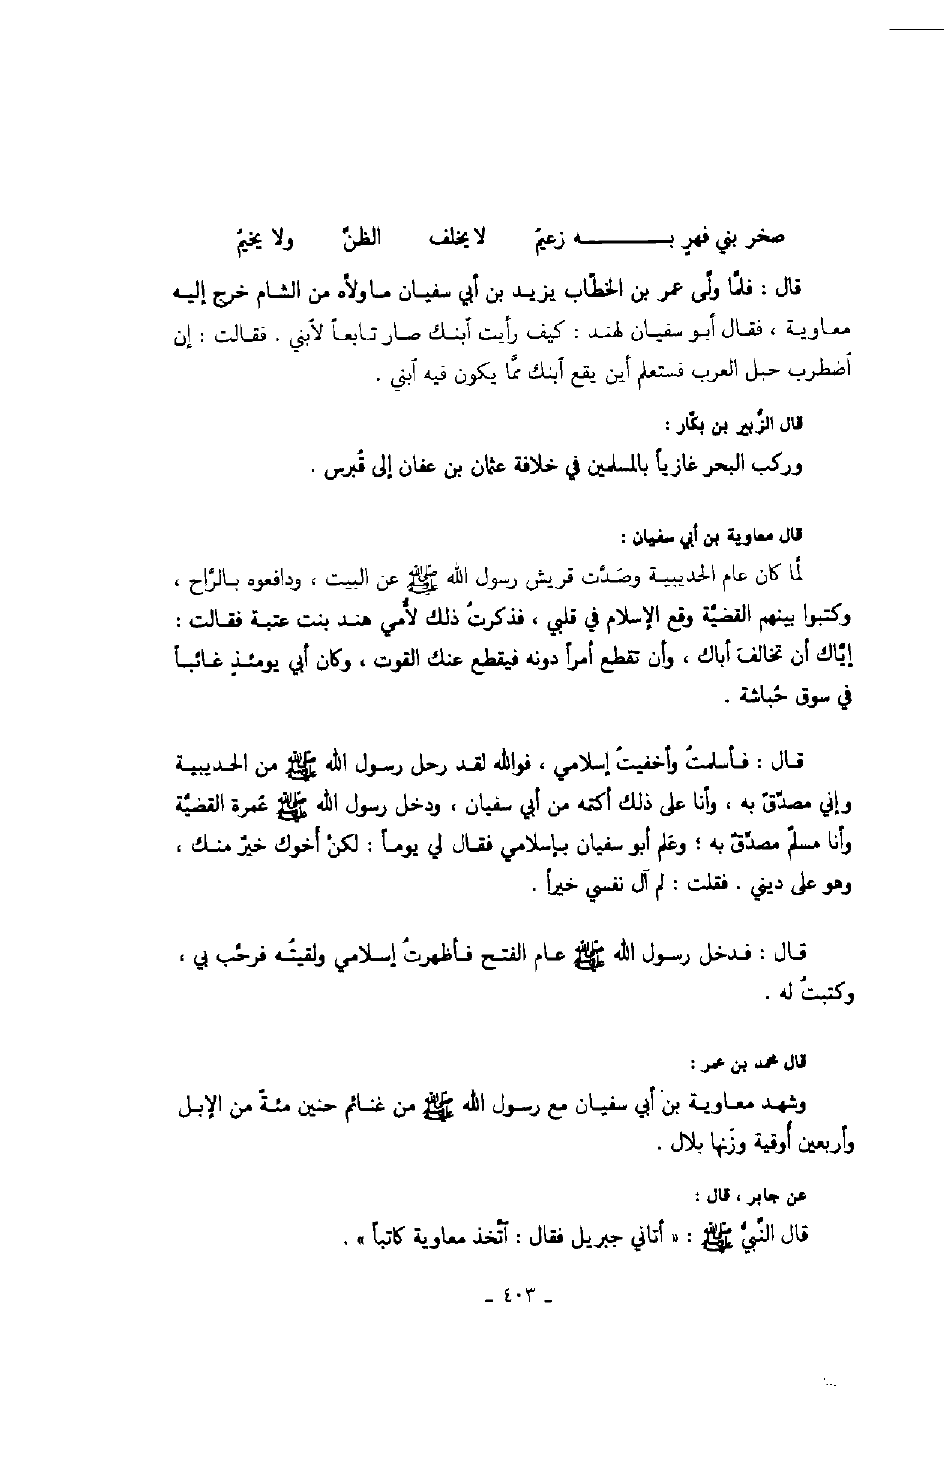 صخر بني فهرٍ بـــه زعيمُ لا يخلف الظنَّ ولا يخيمُ
قال : فلمَّا ولَّى عمر بن الخطّاب يزيد بن أبي سفيان ما ولاّه من الشام خرج إليه
معاوية ، فقال أبو سفيان لهند : كيف رأيت ٱبنك صار تابعاً لٱبني . فقالت : إن
ٱضطرب حبل العرب فستعلم أين يقع ٱبنك ممَّا يكون فيه ٱبني .
قال الزُّبير بن بكّار :
وركب البحر غازياً بالمسلمين في خلافة عثمان بن عفان إلى قُبرس .
قال معاوية بن أبي سفيان :
لمَّا كان عام الحديبية وصَدَّت قريش رسول الله ﷺ عن البيت ، ودافعوه بالرَّاح ،
وكتبوا بينهم القضيَّة وقع الإسلام في قلبي ، فذكرتُ ذلك لأُمي هند بنت عتبة فقالت :
إيَّاك أن تخالفَ أباك ، وأن تقطع أمراً دونه فيقطع عنك القوت ، وكان أبي يومئذٍ غائباً
في سوق حُباشة .
قال : فأسلمتُ وأخفيتُ إسلامي ، فوالله لقد رحل رسول الله ﷺ من الحديبية
وإني مصدّقٌ به ، وأنا على ذلك أكتمه من أبي سفيان ، ودخل رسول الله ﷺ عُمرة القضيَّة
وأنا مسلمٌ مصدّقٌ به ؛ وعَلم أبو سفيان بإسلامي فقال لي يوماً : لكنْ أخوك خيرٌ منك ،
وهو على ديني . فقلت : لم آل نفسي خيراً .
قال : فدخل رسول الله ﷺ عام الفتح فأظهرتُ إسلامي ولقيتُه فرحَّب بي ،
وكتبتُ له .
قال محمد بن عمر :
وشهد معاوية بن أبي سفيان مع رسول الله ﷺ من غنائم حنين مئةً من الإبل
وأربعين أوقية وزنَها بلال .
عن جابر ، قال :
قال النَّبيُّ ﷺ : « أتاني جبريل فقال : ٱتَّخذ معاوية كاتباً » .
ـ ٤٠٣ ـ